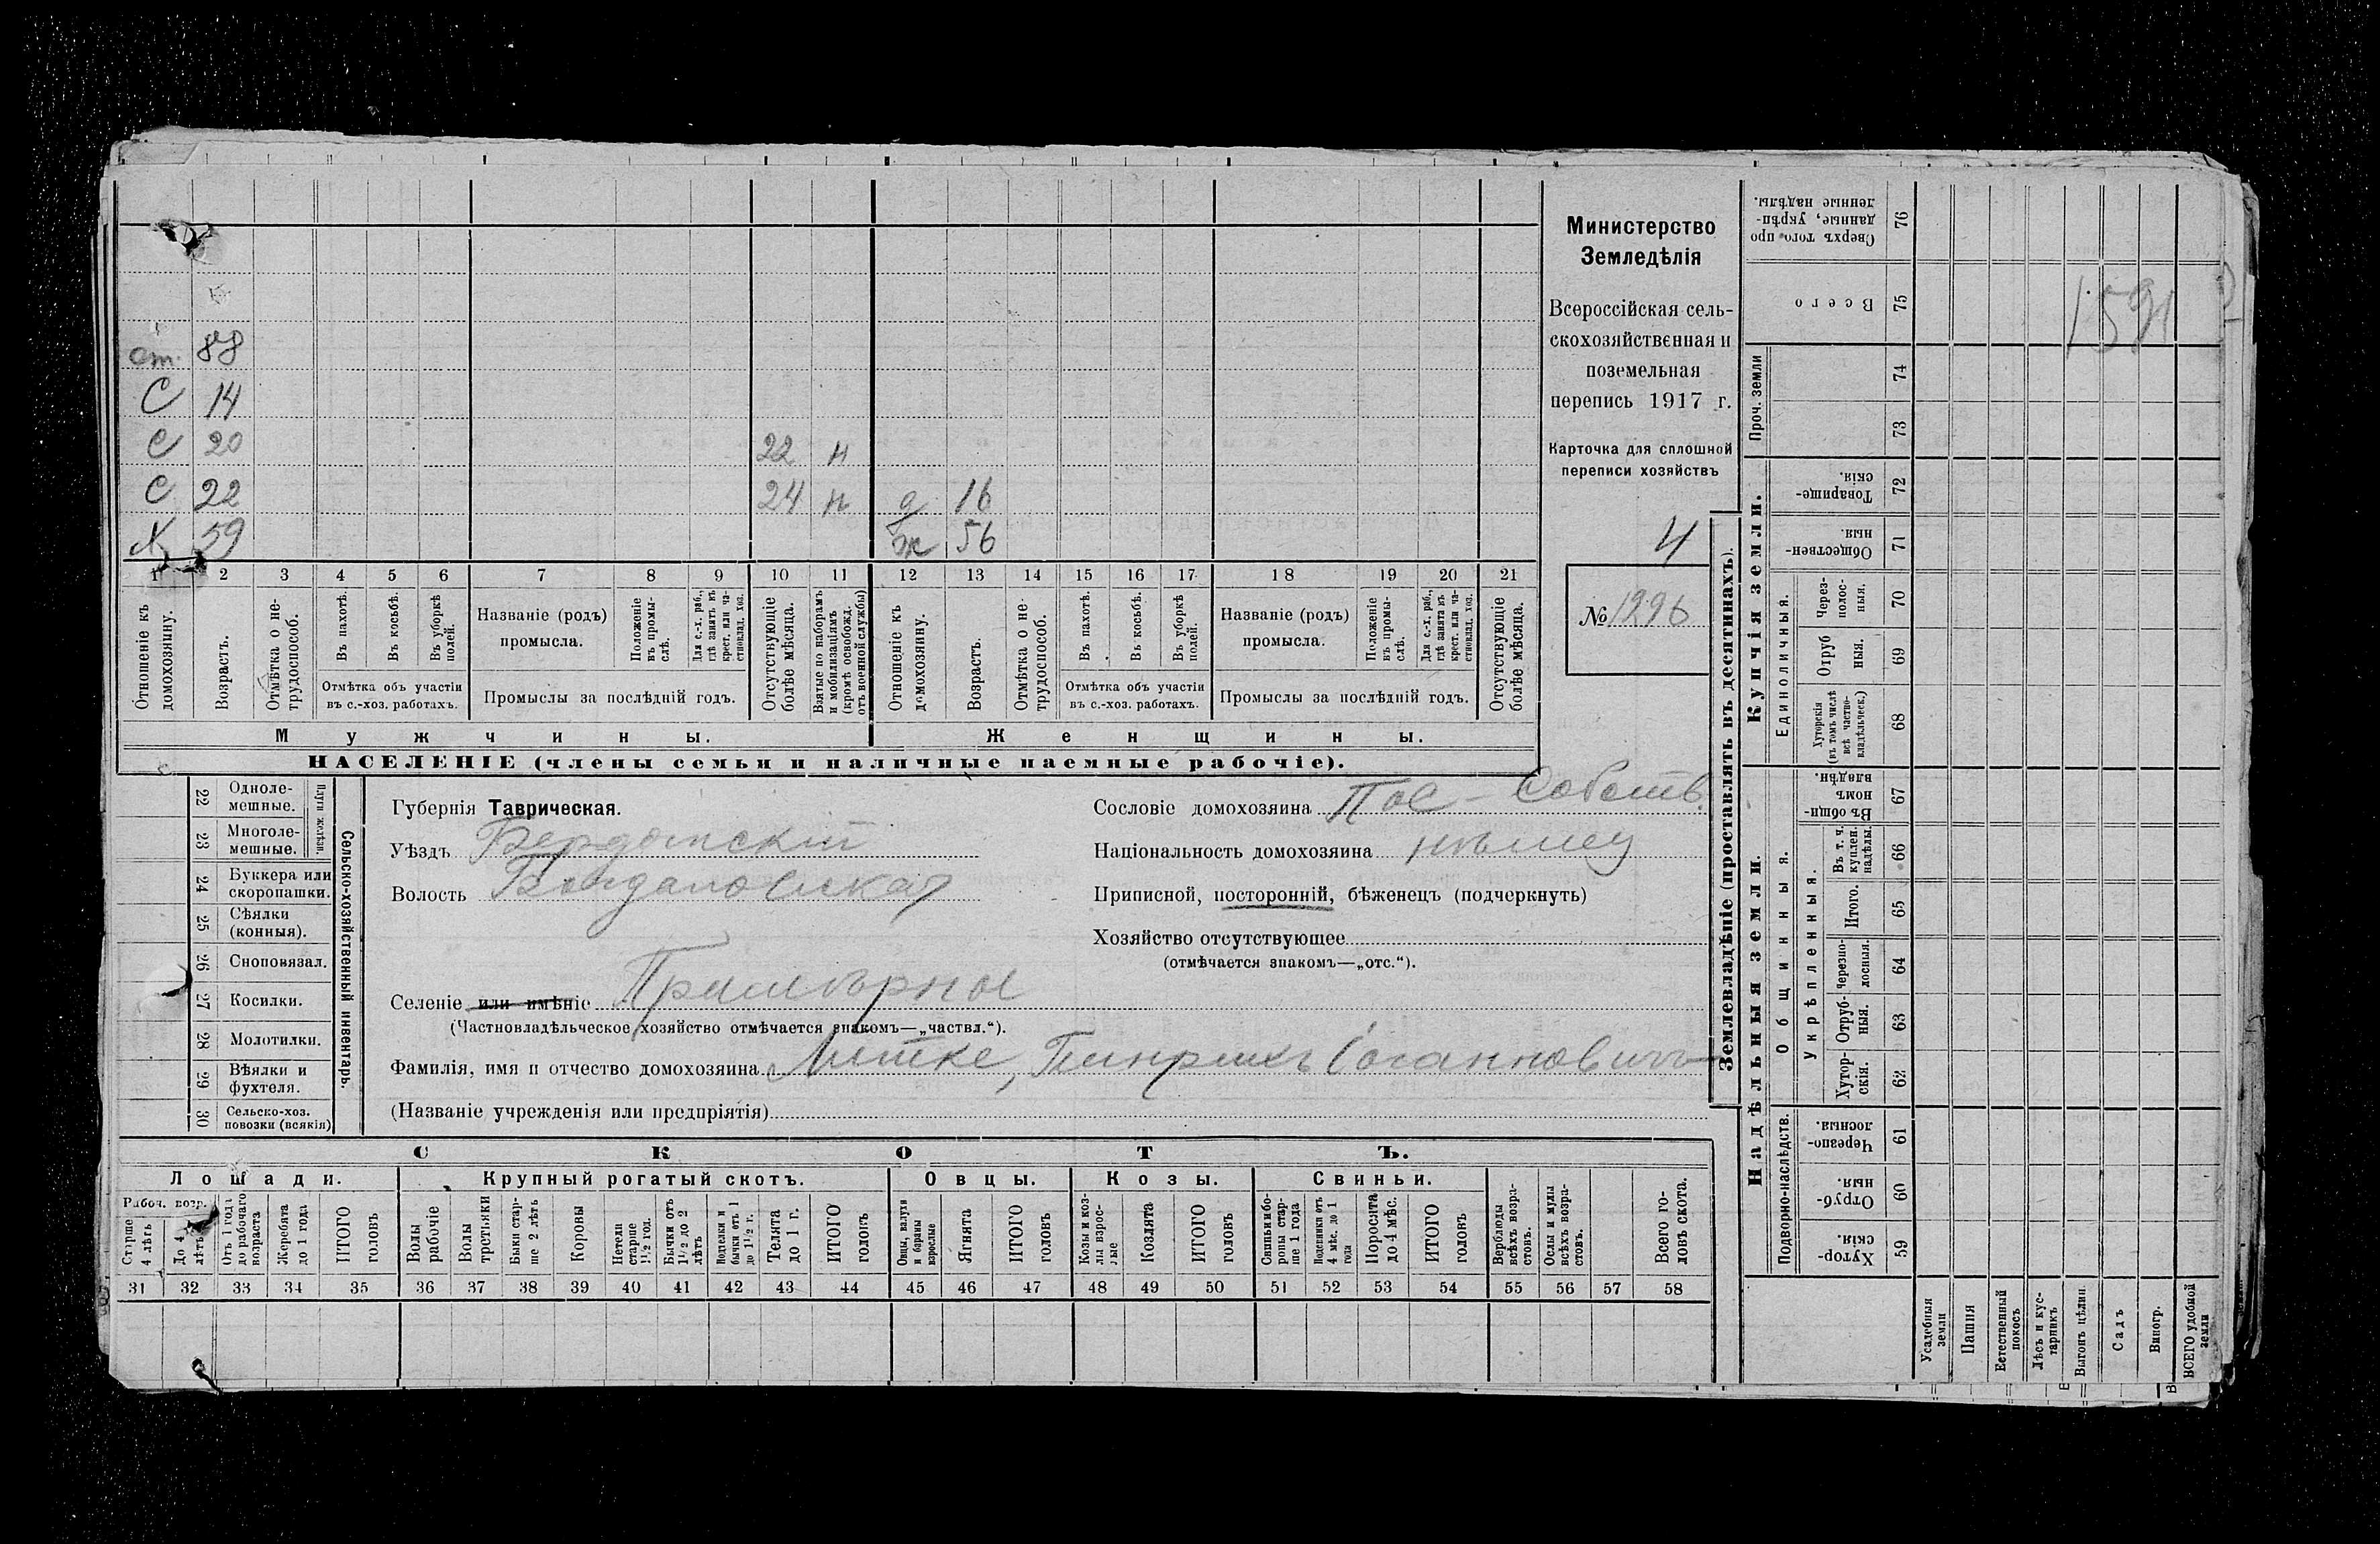 от. 88
С 14
С 20 22 н
С 22 24 н д 16
Х 59 ж 56
1 2 3 4 5 6 7 8 9 10 11 12 13 14 15 16 17 18 19 20 21
Отношеніе къ домохозяину.
Возрастъ.
Отмѣтка о нетрудоспособ.
Въ пахотѣ.
Въ косьбѣ.
Въ уборкѣ полей.
Отмѣтка объ участіи въ с.-хоз. работахъ.
Названіе (родъ) промысла.
Положеніе въ промыслѣ.
Для с.-х. раб., гдѣ занятъ въ крест. или частновлад. хоз.
Промыслы за послѣдній годъ.
Отсутствующіе болѣе мѣсяца.
Взятые по наборамъ и мобилизаціямъ (кромѣ освобожд. отъ военной службы)
Отношеніе къ домохозяину.
Возрастъ.
Отмѣтка о нетрудоспособ.
Въ пахотѣ.
Въ косьбѣ.
Въ уборкѣ полей.
Отмѣтка объ участіи въ с.-хоз. работахъ.
Названіе (родъ) промысла.
Положеніе въ промыслѣ.
Для с.-х. раб., гдѣ занята въ крест. или частновлад. хоз.
Промыслы за послѣдній годъ.
Отсутствующіе болѣе мѣсяца.
Мужчины. Женщины.
НАСЕЛЕНІЕ (члены семьи и наличные наемные рабочіе).
Министерство
Земледѣлія
Всероссійская сель-
скохозяйственная и
поземельная
перепись 1917 г.
Карточка для сплошной
переписи хозяйствъ
4
№ 1296
Сельско-хозяйственный инвентарь.
Плуги желѣзн.
22 Одноле-
мешные.
23 Многоле-
мешные.
24 Буккера или
скоропашки.
25 Сѣялки
(конныя).
26 Сноповязал.
27 Косилки.
28 Молотилки.
29 Вѣялки и
фухтеля.
30 Сельско-хоз.
повозки (всякія)
Губернія Таврическая.
Уѣздъ Бердянскій
Волость Богдановская
Селеніе или имѣніе Примѣрное
(Частновладѣльческое хозяйство отмѣчается знакомъ—„частвл.“).
Фамилія, имя и отчество домохозяина Литке, Гинрихъ Іоганновичъ
(Названіе учрежденія или предпріятія)
Сословіе домохозяина Пос-Собств.
Національность домохозяина нѣмец
Приписной, посторонній, бѣженецъ (подчеркнуть)
Хозяйство отсутствующее
(отмѣчается знакомъ—„отс.“).
СКОТЪ.
Лошади. Крупный рогатый скотъ. Овцы. Козы. Свиньи.
Рабоч. возр.
Старше 4 лѣтъ
До 4 лѣтъ
Отъ 1 года до рабочаго возраста
Жеребята до 1 года
ИТОГО головъ
Волы рабочіе
Волы третьяки
Быки старше 2 лѣтъ
Коровы
Нетели старше 1½ год.
Бычки отъ 1½ до 2 лѣтъ
Подтелки и бычки отъ 1 до 1½ г.
Телята до 1 г.
ИТОГО головъ
Овцы, валухи и бараны взрослые
Ягнята
ИТОГО головъ
Козы и козлы взрослые
Козлята
ИТОГО головъ
Свиньи и боровы старше 1 года
Подсвинки отъ 4 мѣс. до 1 года
Поросята до 4 мѣс.
ИТОГО головъ
Верблюды всѣхъ возрастовъ.
Ослы и мулы всѣхъ возрастовъ.
Всего головъ скота.
31 32 33 34 35 36 37 38 39 40 41 42 43 44 45 46 47 48 49 50 51 52 53 54 55 56 57 58
Землевладѣніе (проставлять въ десятинахъ).
Сверхъ того проданные, укрѣпленные надѣлы. 76
Всего 75
1591
Проч. земли
74
73
Купчія земли.
Товарищескія. 72
Общественныя. 71
Единоличныя.
Черезполосныя. 70
Отрубныя. 69
Хуторскія (въ томъ числѣ всѣ частновладѣльческ.) 68
Надѣльныя земли.
Общинныя.
Въ общинномъ владѣн. 67
Укрѣпленныя.
Въ т. ч. куплен. надѣлы. 66
Итого. 65
Черезполосныя. 64
Отрубныя. 63
Хуторскія. 62
Подворно-наслѣдств.
Черезполосныя. 61
Отрубныя. 60
Хуторскія. 59
Усадебныя земли
Пашня
Естественный покосъ
Лѣсъ и кустарникъ
Выгонъ цѣлин.
Садъ
Виногр.
ВСЕГО удобной земли